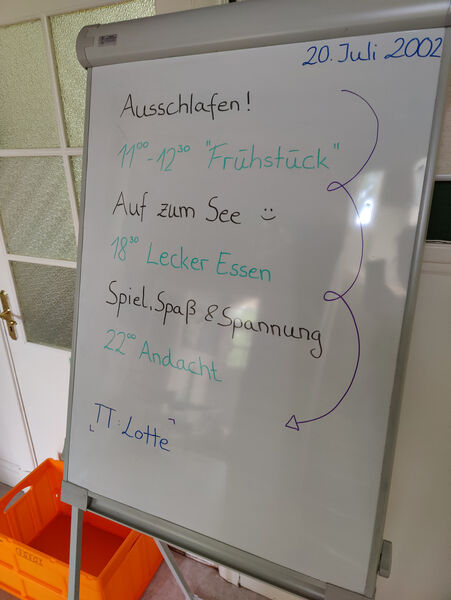 20. Juli 2002
Ausschlafen!
11⁰⁰-12³⁰ "Frühstück"
Auf zum See
18³⁰ Lecker Essen
Spiel, Spaß & Spannung
22⁰⁰ Andacht
TT: Lotte